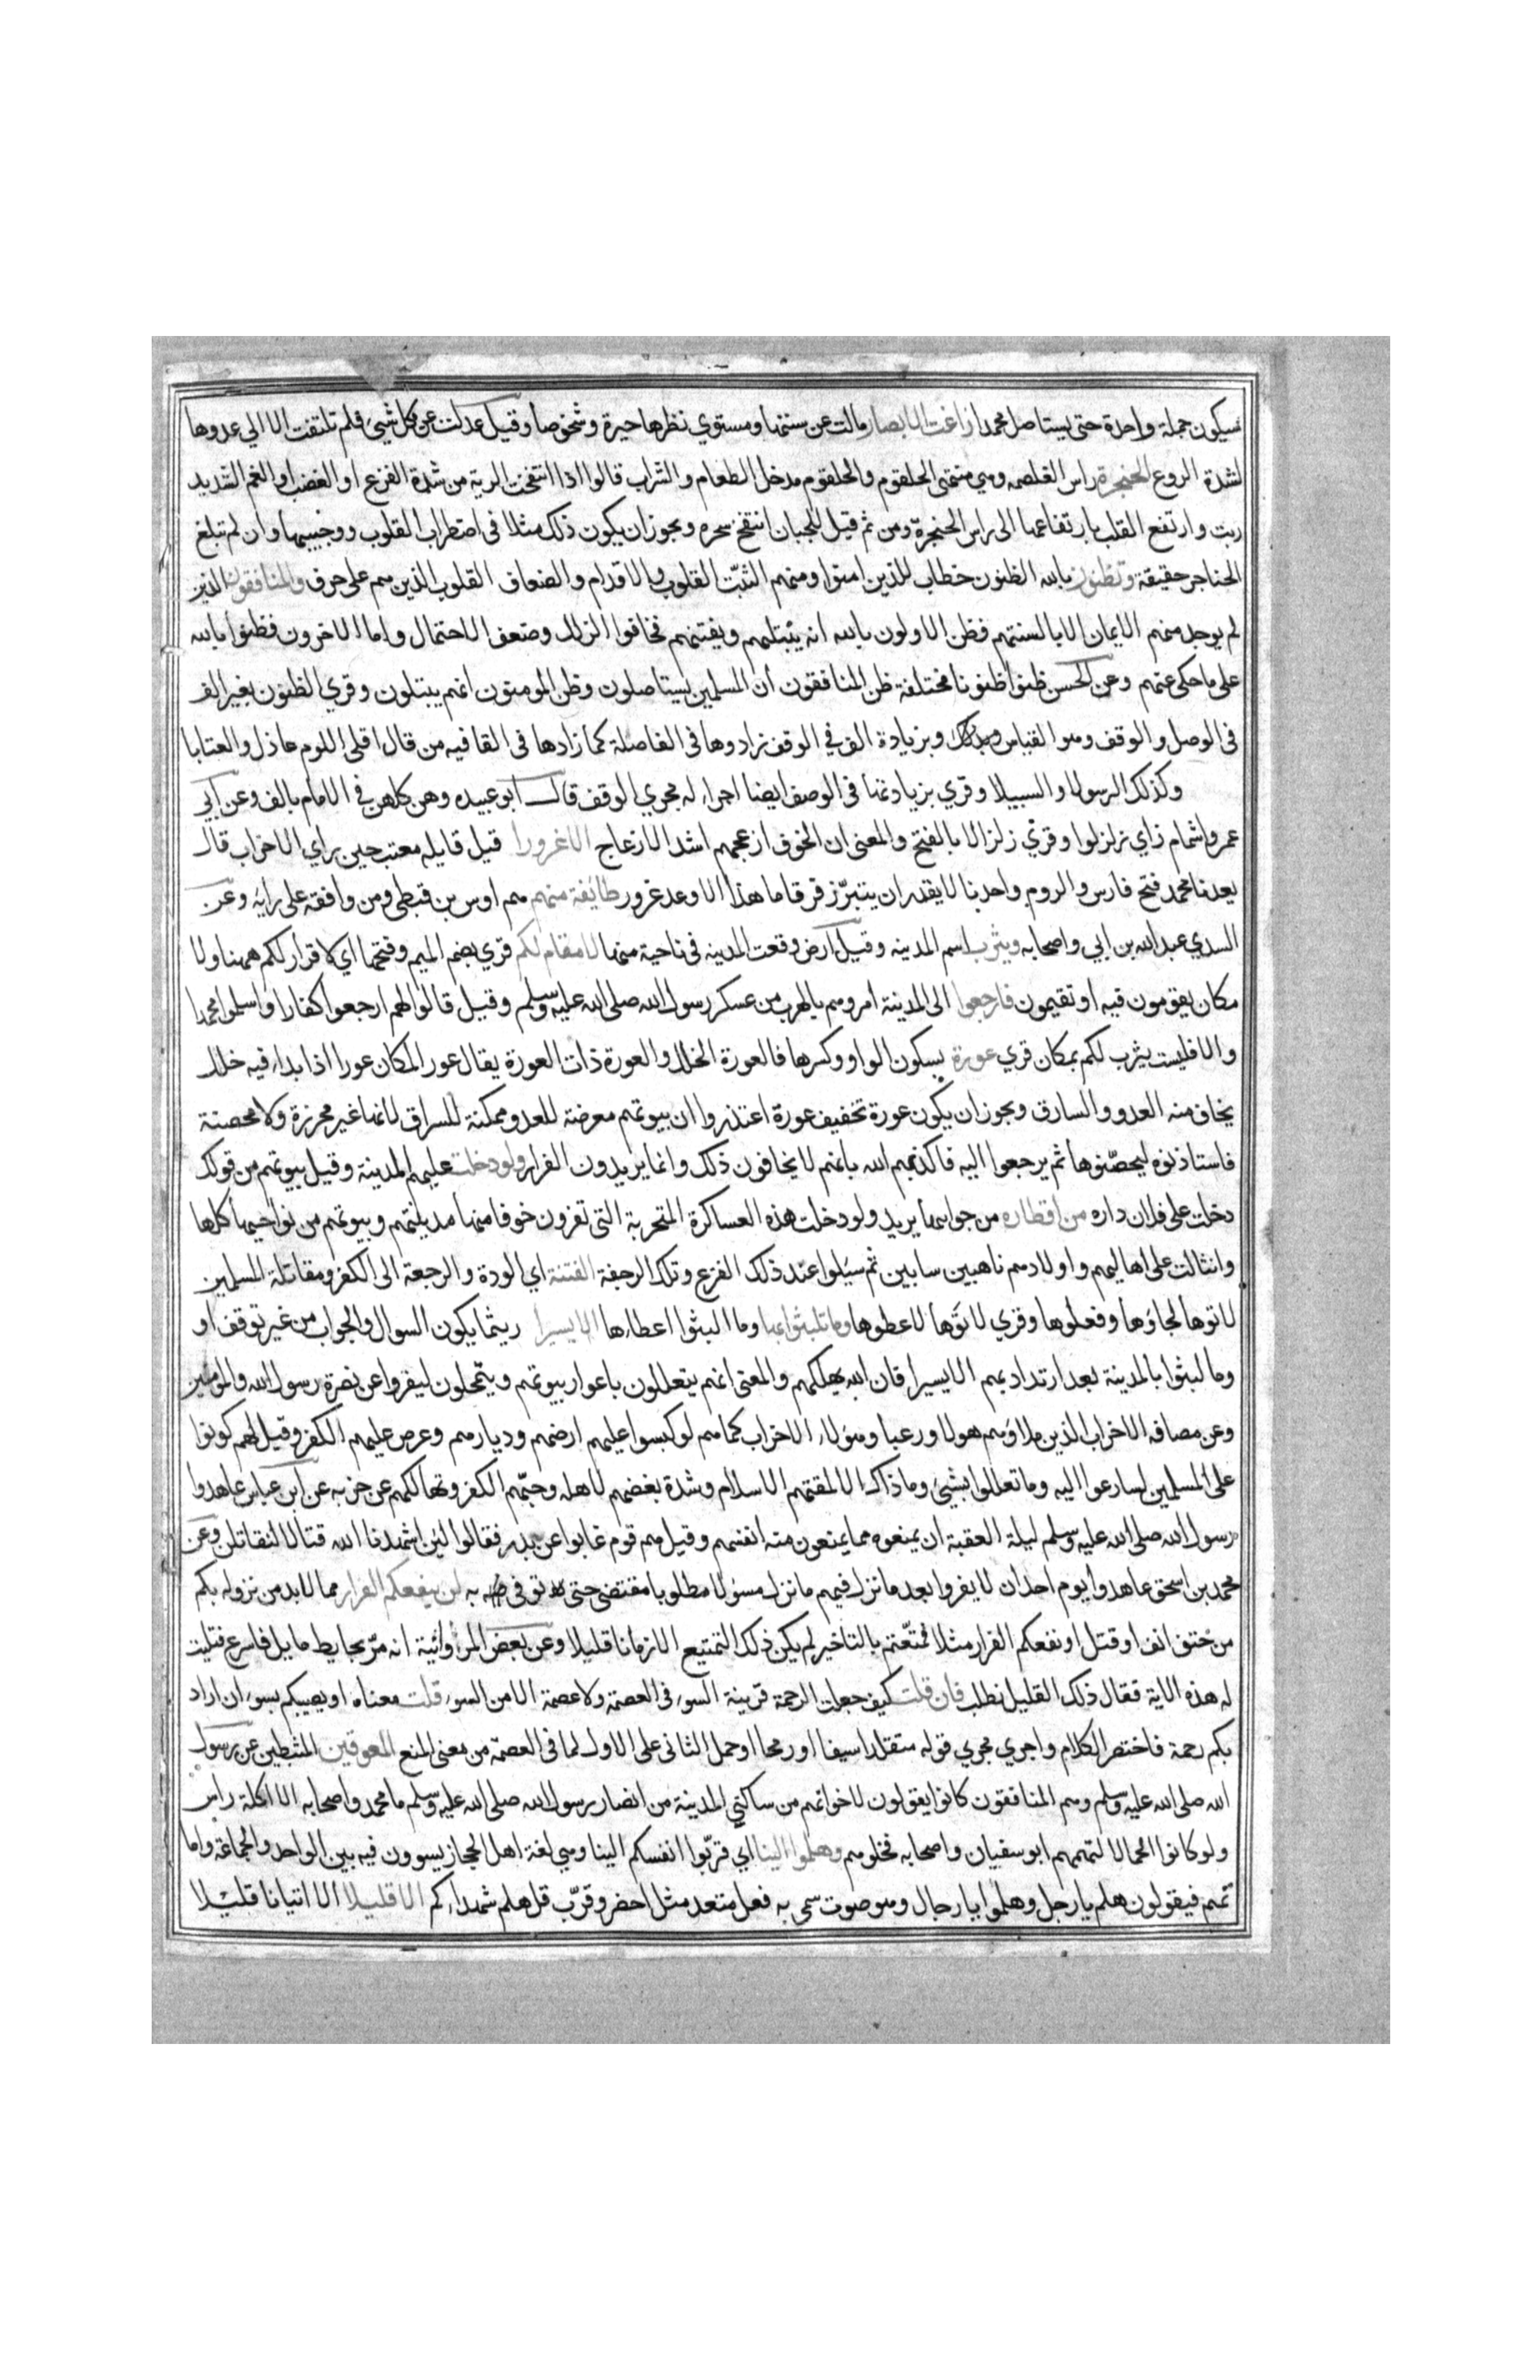 سيكون جملة واحدة حتى يستاصل محمدا زاغت الابصار مالت عن سننها ومستوي نظرها حيرة وشخوصا وقيل عدلت عن كل شيئ فلم تلتفت الا الي عدوها
لشدة الروع الحنجرة راس الغلصمه وهي منتهى الحلقوم والحلقوم مدخل الطعام والشراب قالوا اذا انتفخت الرية من شدة الفزع او الغضب او الغم الشديد
ربت وارتفع القلب بارتفاعها الى راس الحنجرة ومن ثم قيل للجبان انتفخ سحره ويجوز ان يكون ذلك مثلا في اضطراب القلوب ووجيبها وان لم تبلغ
الحناجر حقيقة وتظنون بالله الظنون خطاب للذين امنوا ومنهم الثبّت القلوب والاقدام والضعاف القلوب الذين هم على حرف والمنافقون الذين
لم يوجد منهم الايمان الا بالسنتهم فظن الاولون بالله انه يبتليهم ويفتنهم فخافوا الزلل وضعف الاحتمال واما الاخرون فظنوا بالله
على ما حكى عنهم وعن الحسن ظنوا ظنونا مختلفة ظن المنافقون أن المسلمين يستاصلون وظن المومنون انهم يبتلون وقري الظنون بغير الف
في الوصل والوقف وهو القياس وبزيادة الف في الوقف زادوها في الفاصلة كما زادها في القافيه من قال اقلي اللوم عاذل والعتابا
وكذلك الرسولا والسبيلا وقري بزيادتها في الوصف ايضا اجراء له مجري الوقف قال ابو عبيده وهن كلهن في الامام بالف وعن ابي
عمرو اشمام زاي زلزلوا وقري زلزالا بالفتح والمعنى ان الخوف ازعجهم اشد الازعاج الاغرورا قيل قايله معتب حين راي الاحزاب قال
يعدنا محمد فتح فارس والروم واحدنا لا يقدر ان يتبرّز فرقا ما هذا الا وعد غرور طائفة منهم هم اوس بن قبطي ومن وافقه على رايه وعن
السدي عبد الله بن ابي واصحابه ويثرب اسم المدينه وقيل أرض وقعت المدينه في ناحية منها لا مقام لكم قري بضم الميم وفتحها اي لا قرار لكم ههنا ولا
مكان يقومون فيه او تقيمون فارجعوا الى المدينة امروهم بالهرب من عسكر رسول الله صلى الله عليه وسلم وقيل قالوا لهم ارجعوا كفارا واسلموا محمدا
والا فليست يثرب لكم بمكان قري عورة بسكون الواو وكسرها فالعورة الخلل والعورة ذات العورة يقال عور المكان عورا اذا بداء فيه خلل
يخاف منه العدو والسارق ويجوز ان يكون عورة تخفيف عورة اعتذروا ان بيوتهم معرضة للعدو ممكنة للسراق لانها غير محرزة ولا محصنة
فاستاذنوه ليحصّنوها ثم يرجعوا اليه فاكذبهم الله بانهم لا يخافون ذلك وانما يريدون الفرار ولو دخلت عليهم المدينة وقيل بيوتهم من قولك
دخلت على فلان داره من اقطاره من جوانبها يريد ولو دخلت هذه العساكرة المتحربة التي تفرون خوفا منها مدينتهم وبيوتهم من نواحيها كلها
وانثالت على اهاليهم واولادهم ناهبين سابين ثم سئلوا عند ذلك الفزع وتلك الرجفة الفتنة اي الودة والرجعة الى الكفر ومقاتلة المسلمين
لاتوها لجاؤها وفعلوها وقري لاتوها لاعطوها وما تلبثوا بها وما البثوا اعطاءها الا يسيرا ريثما يكون السوال والجواب من غير توقف او
وما لبثوا بالمدينة بعد ارتدادهم الا يسيرا فان الله يهلكهم والمعنى انهم يتعللون باعوار بيوتهم ويتمحلون ليفروا عن نصرة رسول الله والمومنين
وعن مصافه الاحزاب الذين ملاؤهم هولا ورعبا وهولاء الاحزاب كما هم لو كبسوا عليهم ارضهم وديارهم وعرض عليهم الكفر وقيل لهم كونوا
على المسلمين لسارعوا اليه وما تعللوا بشيئ وما ذاك الا لمقتهم الاسلام وشدة بغضهم لاهله وحبّهم الكفر وتهالكهم عن حزبه عن ابن عباس عاهدوا
رسول الله صلى الله عليه وسلم ليلة العقبة ان يمنعوه مما يمنعون منه انفسهم وقيل هم قوم غابوا عن بدر فقالوا لئن اشهدنا الله قتالا لنقاتلن وعن
محمد بن اسحق عاهدوا يوم احد ان لا يفروا بعد ما نزل فيهم ما نزل مسؤلا مطلوبا مقتضى حتى توفى به لن ينفعكم الفرار مما لا بد من نزوله بكم
من حتف انف او قتل او نفعكم الفرار مثلا فمتعّتم بالتاخير لم يكن ذلك التمتيع الا زمانا قليلا وعن بعض المروانية انه مرّ بحايط مايل فاسرع فتليت
له هذه الاية فقال ذلك القليل نطلب فان قلت كيف جعلت الرحمة قرينة السوء في العصمة ولا عصمة الا من السوء قلت معناه او يصيبكم بسوء ان اراد
بكم رحمة فاختصر الكلام واجري مجري قوله متقلدا سيفا ورمحا او حمل الثاني على الاول لما في العصمة من معنى المنع المعوقين المثبطين عن رسول
الله صلى الله عليه وسلم وهم المنافقون كانوا يقولون لاخوانهم من ساكني المدينة من انصار رسول الله صلى الله عليه وسلم ما محمد واصحابه الا اكلة راس
ولو كانوا لحما لالتهمهم ابو سفيان واصحابه فخلوهم وهلموا الينا اي قربّوا انفسكم الينا وهي لغة اهل الحجاز يسوون فيه بين الواحد والجماعة واما
تميم فيقولون هلم يا رجل وهلموا يا رجال وهو صوت سمي به فعل متعد مثل احضر وقرّب قل هلم شهداءكم الا قليلا الا اتيانا قليلا